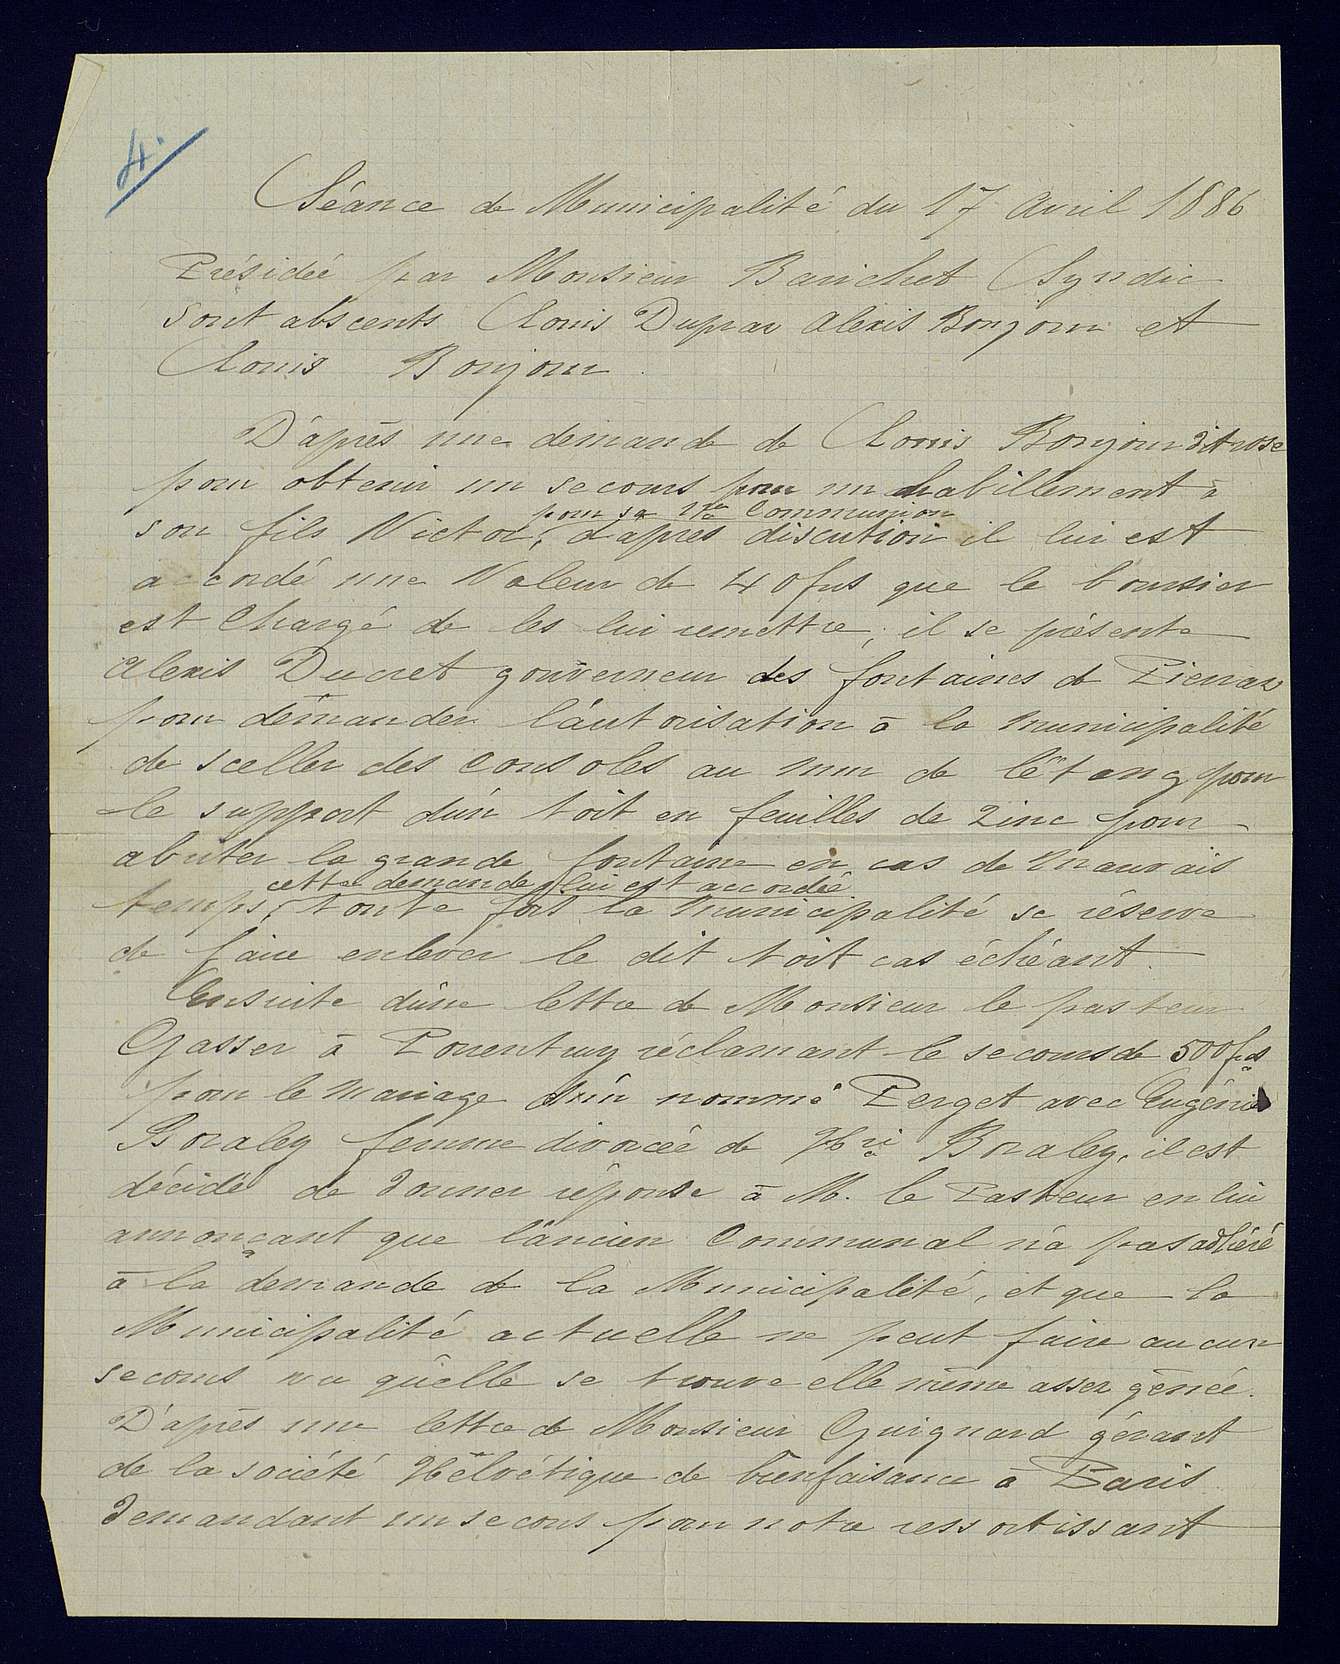 4.
Séance de Municipalité du 17 Avril 1886
Présidée par Monsieur Barichet Syndic
Sont abscents Louis Duprax Alexis Bonjour et
Louis Bonjour.
D'après une demande de Louis Bonjour
pour obtenir un secours pour un habillement à
pour sa 1re Communion
son fils Victor, d'après discution il lui est
accordé une Valeur de 40 frs que le boursier
est Chargé de les lui remettre, il se présente
Alexis Ducret gouverneur des fontaines de
pour demander l'autorisation à la municipalité
de sceller des consoles au mur de l'êtang pour
le support d'un toit en feuilles de zinc pour
abriter la grande fontaine en cas de mauvais
cette demande lui est accordée
temps, toute fois la municipalité se réserve
de faire enlever le dit toit cas échéant.
Ensuite d'une lettre de Monsieur le pasteur
Gasser à Porrentruy réclamant le secours de 500 frs
pour le mariage d'un nommé Perget avec Eugénie
Boraley femme divorcée de Hri Boraley, il est
décidé de donner réponse à M. le Pasteur en lui
annonçant que l'ancien Communal n'a pas adhéré
à la demande de la Municipalité, et que la
Municipalité actuelle ne peut faire aucun
secours vu qu'elle se trouve elle même assez gênée.
D'après une lettre de Monsieur Guignard gérant
de la société Helvétique de bienfaisance à Paris
demandant un secours pour notre ressortissant